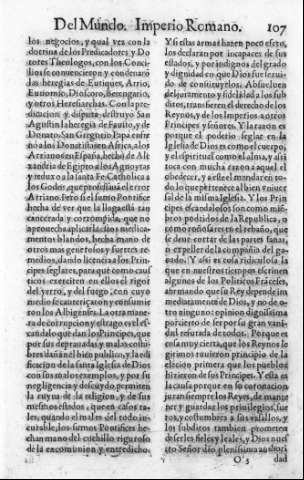 Del Mundo. Imperio Romano. 107
los negocios, y qual vez con la
doctrina de los Predicadores, y Do
tores Theologos, con los Conci-
lios se convencieron y condenarõ
las heregias de Eutiques, Arrio,
Eunomio, Dioscoro, Berengario,
y otros Heresiarchas. Con la pre-
dicacion y disputa destruyò San
Agustin la heregia de Fausto, y de
Donato. San Gregorio Papa
a los Donatistas en Africa, a los
Arrianos en España, hechò de Ale
xandria de Egipto a los Agnoytas
y reduxo a la santa Fè Catholica a
los Godos, que professavã el error
Arriano. Pero si el sumo Pontifice
hecha de ver que la llaga està tan
cancerada y corrompida, que no
aprovecha aplicarla estos medica-
mentos blandos, hecha mano de
otros mas generosos y fuertes re-
medios, dando licencia a los Prin-
cipes seglares, para que como
ticos exerciten en ellos el rigor
del yerro, y del fuego con cuyo
medio se cauterizaron y consumie
ron los Albigenses. La otra mane-
ra de corrupcion y estrago es el es-
candalo que dan los Principes, que
por sus depravadas y malas costũ-
bres dañan el bien publico, y la edi
ficacion de la santa Iglesia de Dios
con sus malos exemplos, y por su
negligencia y descuydo, permiten
la ruyna de la religion, y de sus
mesmos estados, que en casos ta-
les, quando el mal es del todo in-
curable, los sumos Pontifices he-
chan mano del cuchillo riguroso
de la excomunion y entredicho.
Y si estas armas hazen poco efeto,
los declaran por incapaces de sus
estados, y por indignos del grado
y dignidad en que Dios fue servi-
do de constituyrlos. Absuelven
del juramento y fidelidad a los sub
ditos, transfieren el derecho de los
Reynos, y de los Imperios a otros
Principes y señores. Y la razon es
porque el poderio seglar en la
Iglesia de Dios es como el cuerpo,
y el espiritual como el alma, y assi
toca con mucha razon a aquel el
obedecer, y a este el mandar en to-
do lo que pertenece al bien univer
sal de la misma Iglesia. Y los Prin
cipes escandalosos son como mie-
bros podridos de la Republica, o
como roña en el rebaño, que
se deve cortar de las partes sanas,
o expeler de la compañia del ga-
nado. Y assi es cosa ridiculosa la
que en nuestros tiempos escriven
algunos de los Politicos Frãceses,
afirmando que su Rey depende im
mediatamente de Dios, y no de o-
tro ninguno: opinion dignissima
por cierto de ser por su gran vani-
dad refutada de todos. Porque es
cosa muy cierta, que los Reynos le
gitimos tuvieron principio de la
eleccion primera que los pueblos
hizieron de sus Principes. Y esta es
la causa porque en su coronacion
juran siempre los Reyes, de mante
ner y guardar los privilegios, fue
ros, y costumbres a sus vassallos, y
los subditos tambien prometen
de serles fieles y leales, y Dios nues
tro Señor dio plenissima autori
O 3 dad